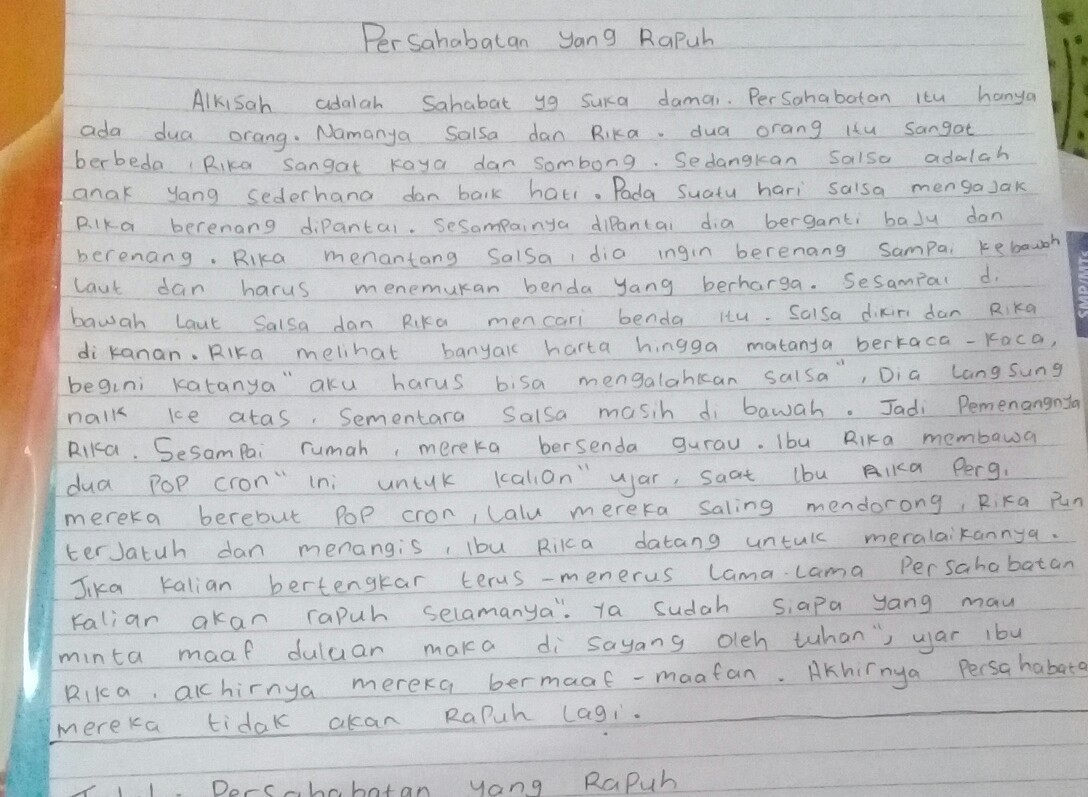 Persahabatan yang Rapuh
Alkisah adalah Sahabat yg suka damai. Persahabatan itu hanya
ada dua orang. Namanya Salsa dan Rika. dua orang itu sangat
berbeda, Rika sangat kaya dan sombong. Sedangkan Salsa adalah
anak yang sederhana dan baik hati. Pada suatu hari salsa mengajak
Rika berenang dipantai. Sesampainya dipantai dia berganti baju dan
berenang. Rika menantang Salsa, dia ingin berenang sampai kebawah
laut dan harus menemukan benda yang berharga. Sesampai di
bawah laut Salsa dan Rika mencari benda itu. Salsa dikiri dan Rika
di kanan. Rika melihat banyak harta hingga matanya berkaca-kaca,
begini katanya "aku harus bisa mengalahkan salsa", Dia langsung
naik ke atas, Sementara Salsa masih di bawah. Jadi Pemenangnya
Rika. Sesampai rumah, mereka bersenda gurau. Ibu Rika membawa
dua Pop cron "ini untyk kalian" ujar, saat Ibu Rika Pergi
mereka berebut Pop cron, lalu mereka saling mendorong, Rika Pun
terjatuh dan menangis, Ibu Rika datang untuk meralaikannya.
Jika kalian bertengkar terus-menerus lama-lama Persahabatan
kalian akan rapuh selamanya". ya sudah siapa yang mau
minta maaf duluan maka di sayang oleh tuhan", ujar ibu
Rika, akhirnya mereka bermaaf-maafan. Akhirnya Persahabata
mereka tidak akan Rapuh lagi.
Persahabatan yang Rapuh